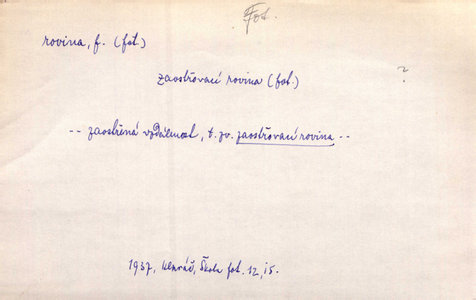 Fot.
rovina, f. (fot.)
zaostřovací rovina (fot.)
?
-- zaostřená vzdálenost, t. zv. zaostřovací rovina --
1937, Škola fot. 12, 15.